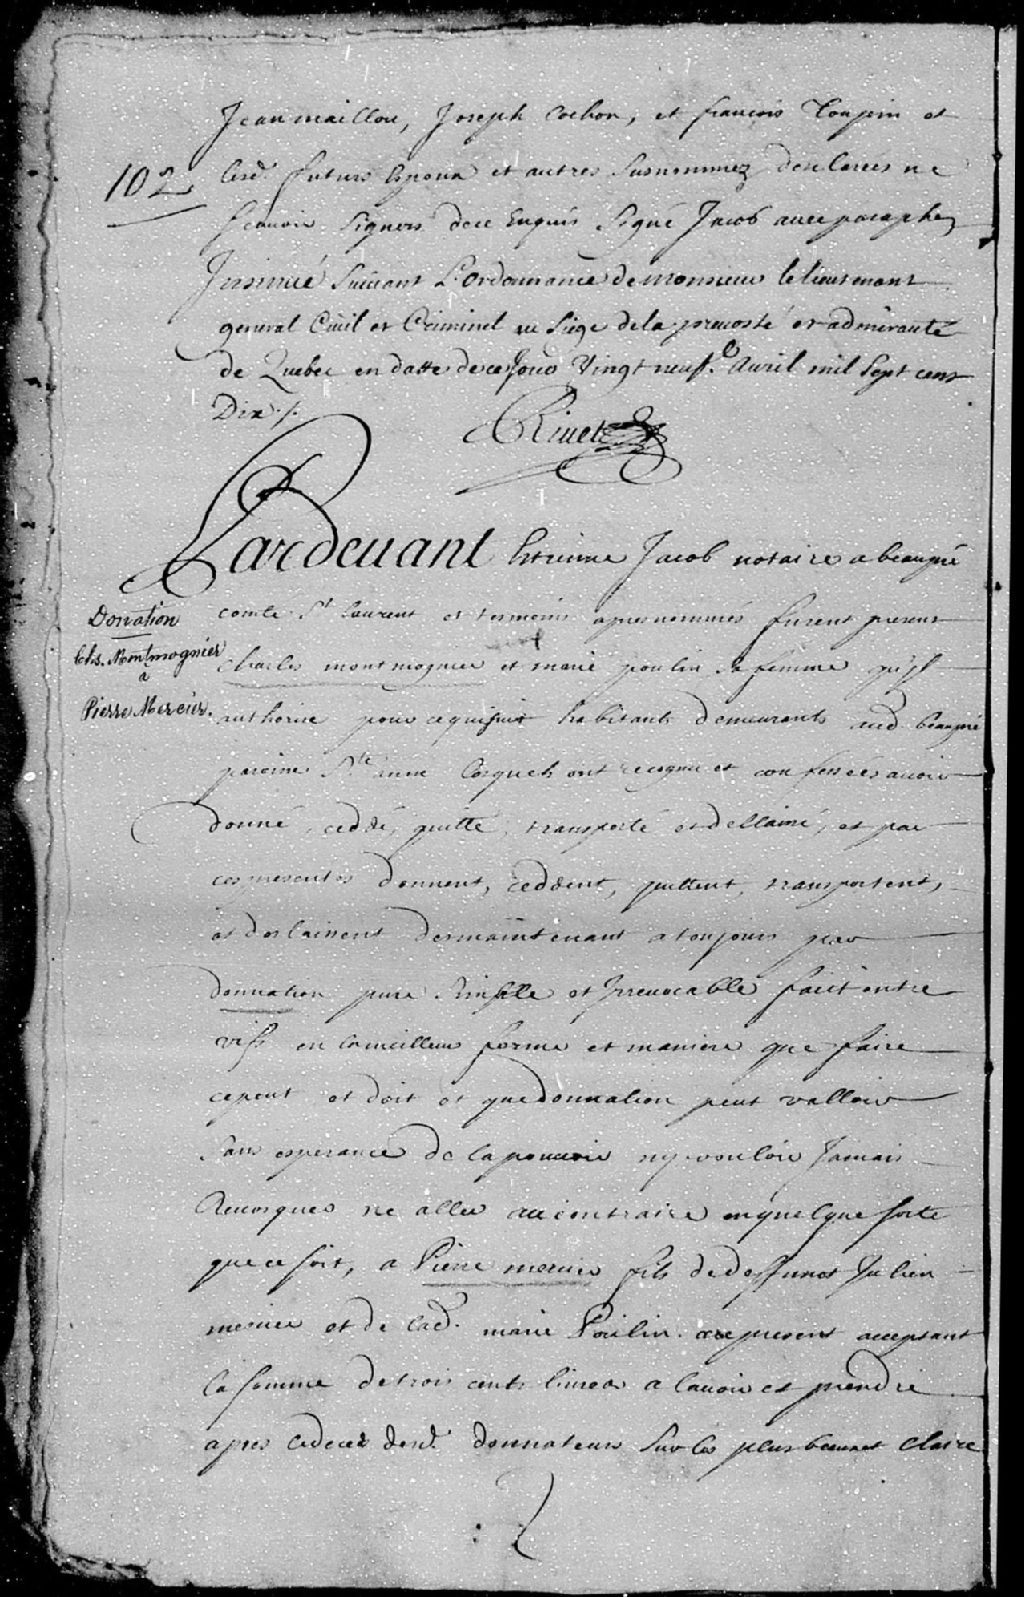 Jean maillou, Joseph Cochon, et francois Toupin et
102
lesd. futurs Epoux et autres susnommez declarees ne
scauoir signers dece Enquis Signé Jacob auec paraphe,
Insinué suiuant L'ordonnance de monsieur le lieutenant
general Ciuil et Criminel au siege de la preuosté et admirauté
de Quebec en datte de ce Jour Vingt neufe. Auril mil sept cens
Dix ./.
Riuet
Pardeuant Estienne Jacob notaire a beaupré
Donation
Chs. Montmagnier
à
Pierre Mercier.
comté St laurent et tesmoins apres nommés furent presens
Charles montmagnier et marie poulin sa femme qu'il
authorise pour ce qui suit habitants demeurants aud. beaupré
paroisse Ste anne Lesquels ont recognu et confessées auoir
donné, ceddé, quitté, transporté et dellaissé, et par
ces presentes donnent, ceddent, quittent, transportent,
et deslaissent des maintenant a toujours par
donnation pure simple et Irreuocable fait entre
vifs en la meilleur forme et maniere que faire
ce peut et doit et que donnation peut valloir
sans esperance de la pouuoir ny vouloir Jamais
Reuorques ne aller au contraire en quelque sorte
que ce soit, a Pierre mercier fils de deffunct Julien
mercier et de lad. marie Poulin a ce present acceptant
la somme de trois cents liures a lauoir et prendre
apres le deces desd. donnateurs sur les plus beaux et claire